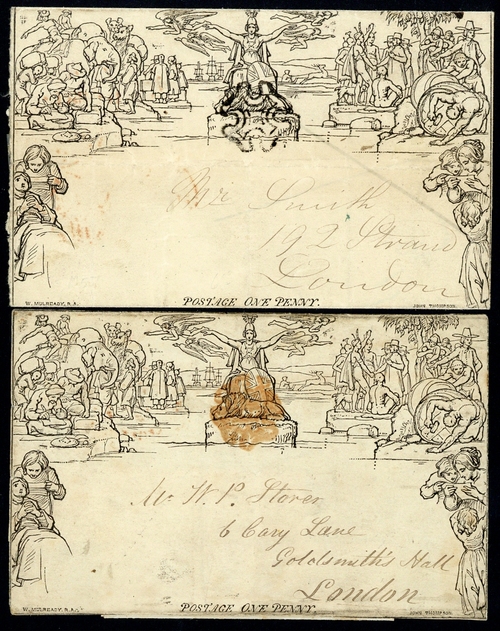 Mr Smith
192 Strand
London
W. MULREADY, R.A.
POSTAGE ONE PENNY.
JOHN THOMPSON.
Mr W. P. Storer
6 Cary Lane
Goldsmith's Hall
London
W. MULREADY, R.A.
POSTAGE ONE PENNY.
JOHN THOMPSON.